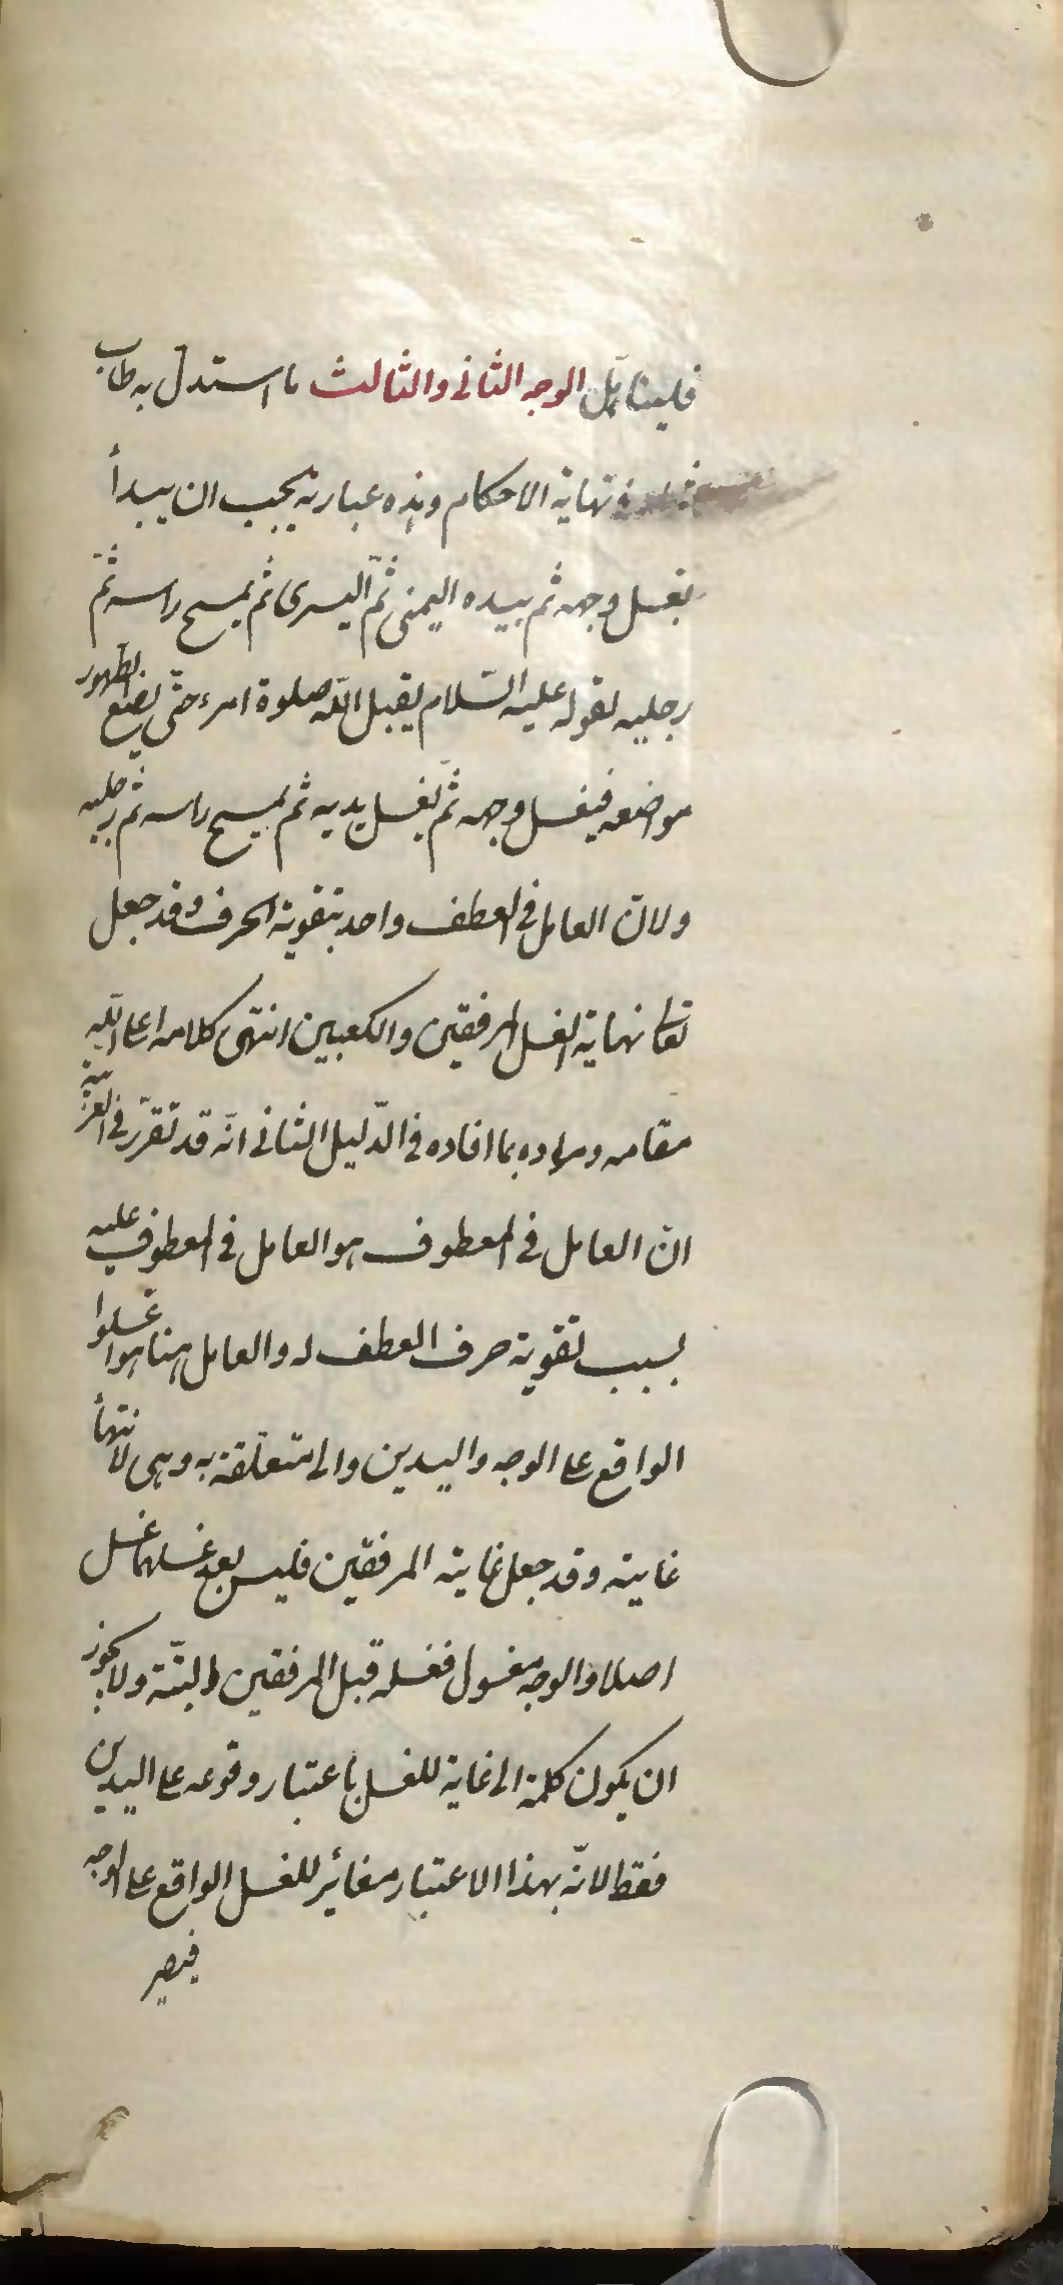 فليتأمّل الوجه الثانى والثالث ما استدل به طاب
فى نهاية الاحكام وهذه عبارته يجب ان يبدأ
بغسل وجهه ثم بيده اليمنى ثمّ اليسرى ثم يمسح راسه ثمّ
رجليه لقوله عليه السّلام يقبل اللّه صلوة امرء حتّى يضع الطهور
مواضعه فيغسل وجهه ثمّ يغسل يديه ثم يمسح راسه ثم رجليه
ولان العامل فى العطف واحد بتقوية الحرف وقد جعل
تعالى نهاية الغسل المرفقين والكعبين انتهى كلامه اعلى اللّه
مقامه ومراده بما افاده فى الدّليل الثانى انّه قد تقرّر فى العربية
انّ العامل فى المعطوف هو العامل فى المعطوف عليه
بسبب تقوية حرف العطف له والعامل هنا هو اغسلوا
الواقع على الوجه واليدين والى متعلّقة به وهى لانتهأ
غايته وقد جعل غايته المرفقين فليس بعد غسلهما غسل
اصلا والوجه مغسول فغسله قبل المرفقين البتّة ولا يجوز
ان يكون كلمة الى غاية للغسل باعتبار وقوعه على اليدين
فقط لانّه بهذا الاعتبار مغائر للغسل الواقع على الوجه
فيصير